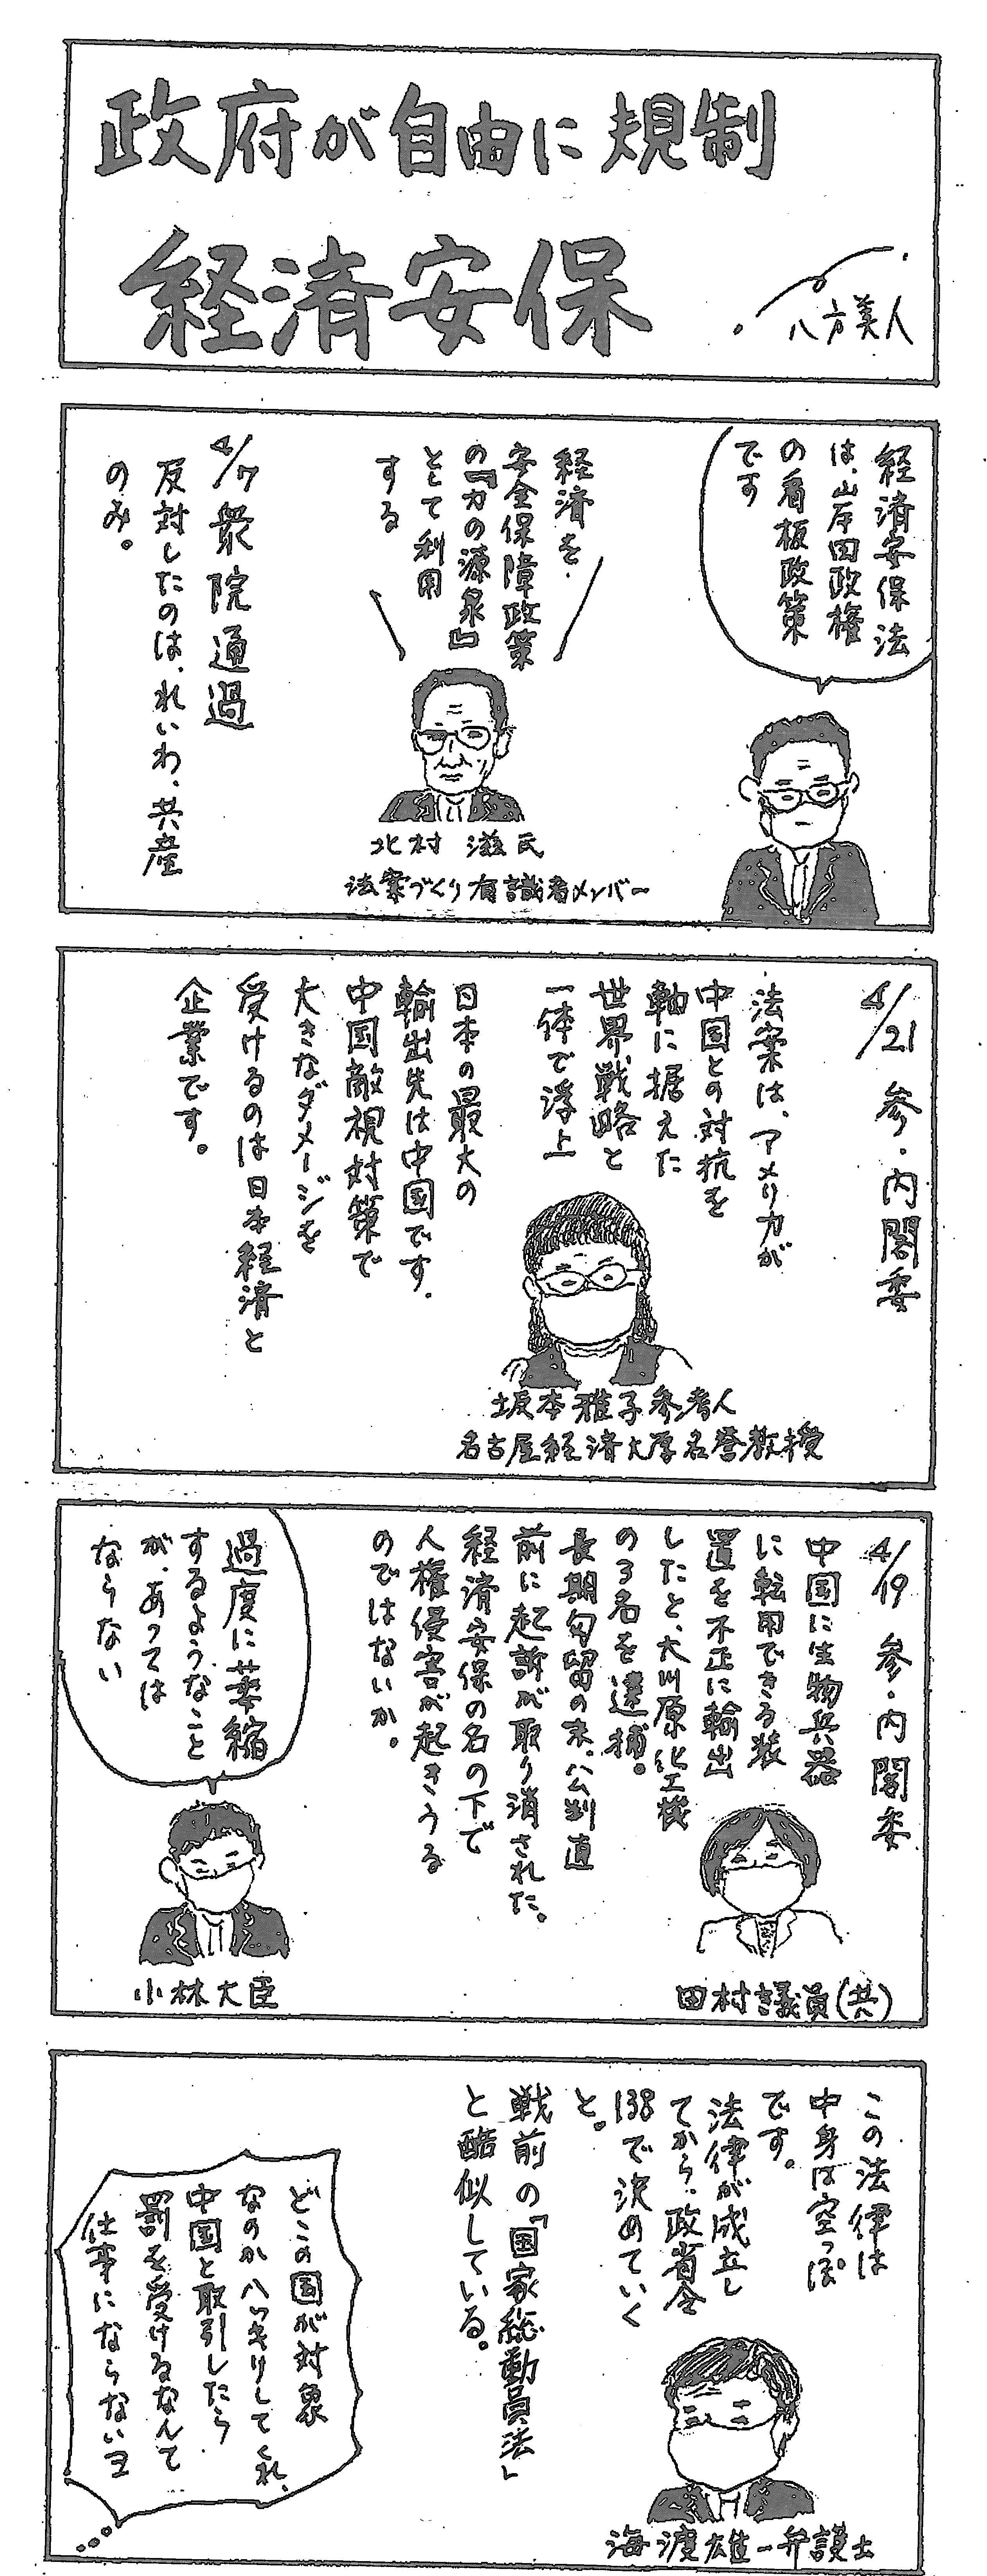 政府が自由に規制
経済安保
八方美人
経済安保法
は、岸田政権
の看板政策
です
経済を
安全保障政策
の『力の源泉』
として利用
する
北村 滋氏
法案づくり有識者メンバー
4/7 衆院通過
反対したのは、れいわ、共産
のみ。
4/21 参・内閣委
法案は、アメリカが
中国との対抗を
軸に据えた
世界戦略と
一体で浮上
日本の最大の
輸出先は中国です。
中国敵視対策で
大きなダメージを
受けるのは日本経済と
企業です。
坂本雅子参考人
名古屋経済大学名誉教授
4/19 参・内閣委
中国に生物兵器
に転用できる装
置を不正に輸出
したと、大川原化工機
の3名を逮捕。
長期勾留の末、公判直
前に起訴が取り消された。
経済安保の名の下で
人権侵害が起きうる
のではないか。
田村議員(共)
過度に萎縮
するようなこと
が、あっては
ならない
小林大臣
この法律は
中身は空っぽ
です。
法律が成立し
てから、政省令
138で決めていく
と。
戦前の「国家総動員法」
と酷似している。
海渡雄一弁護士
どこの国が対象
なのかハッキリしてくれ、
中国と取引したら
罰を受けるなんて
仕事にならないヨ